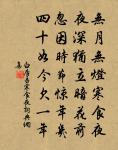 無月無燈寒食夜
夜深猶立暗花前
忽因時節驚年幾
四十如今欠一年
白居易寒食夜詞典網
集